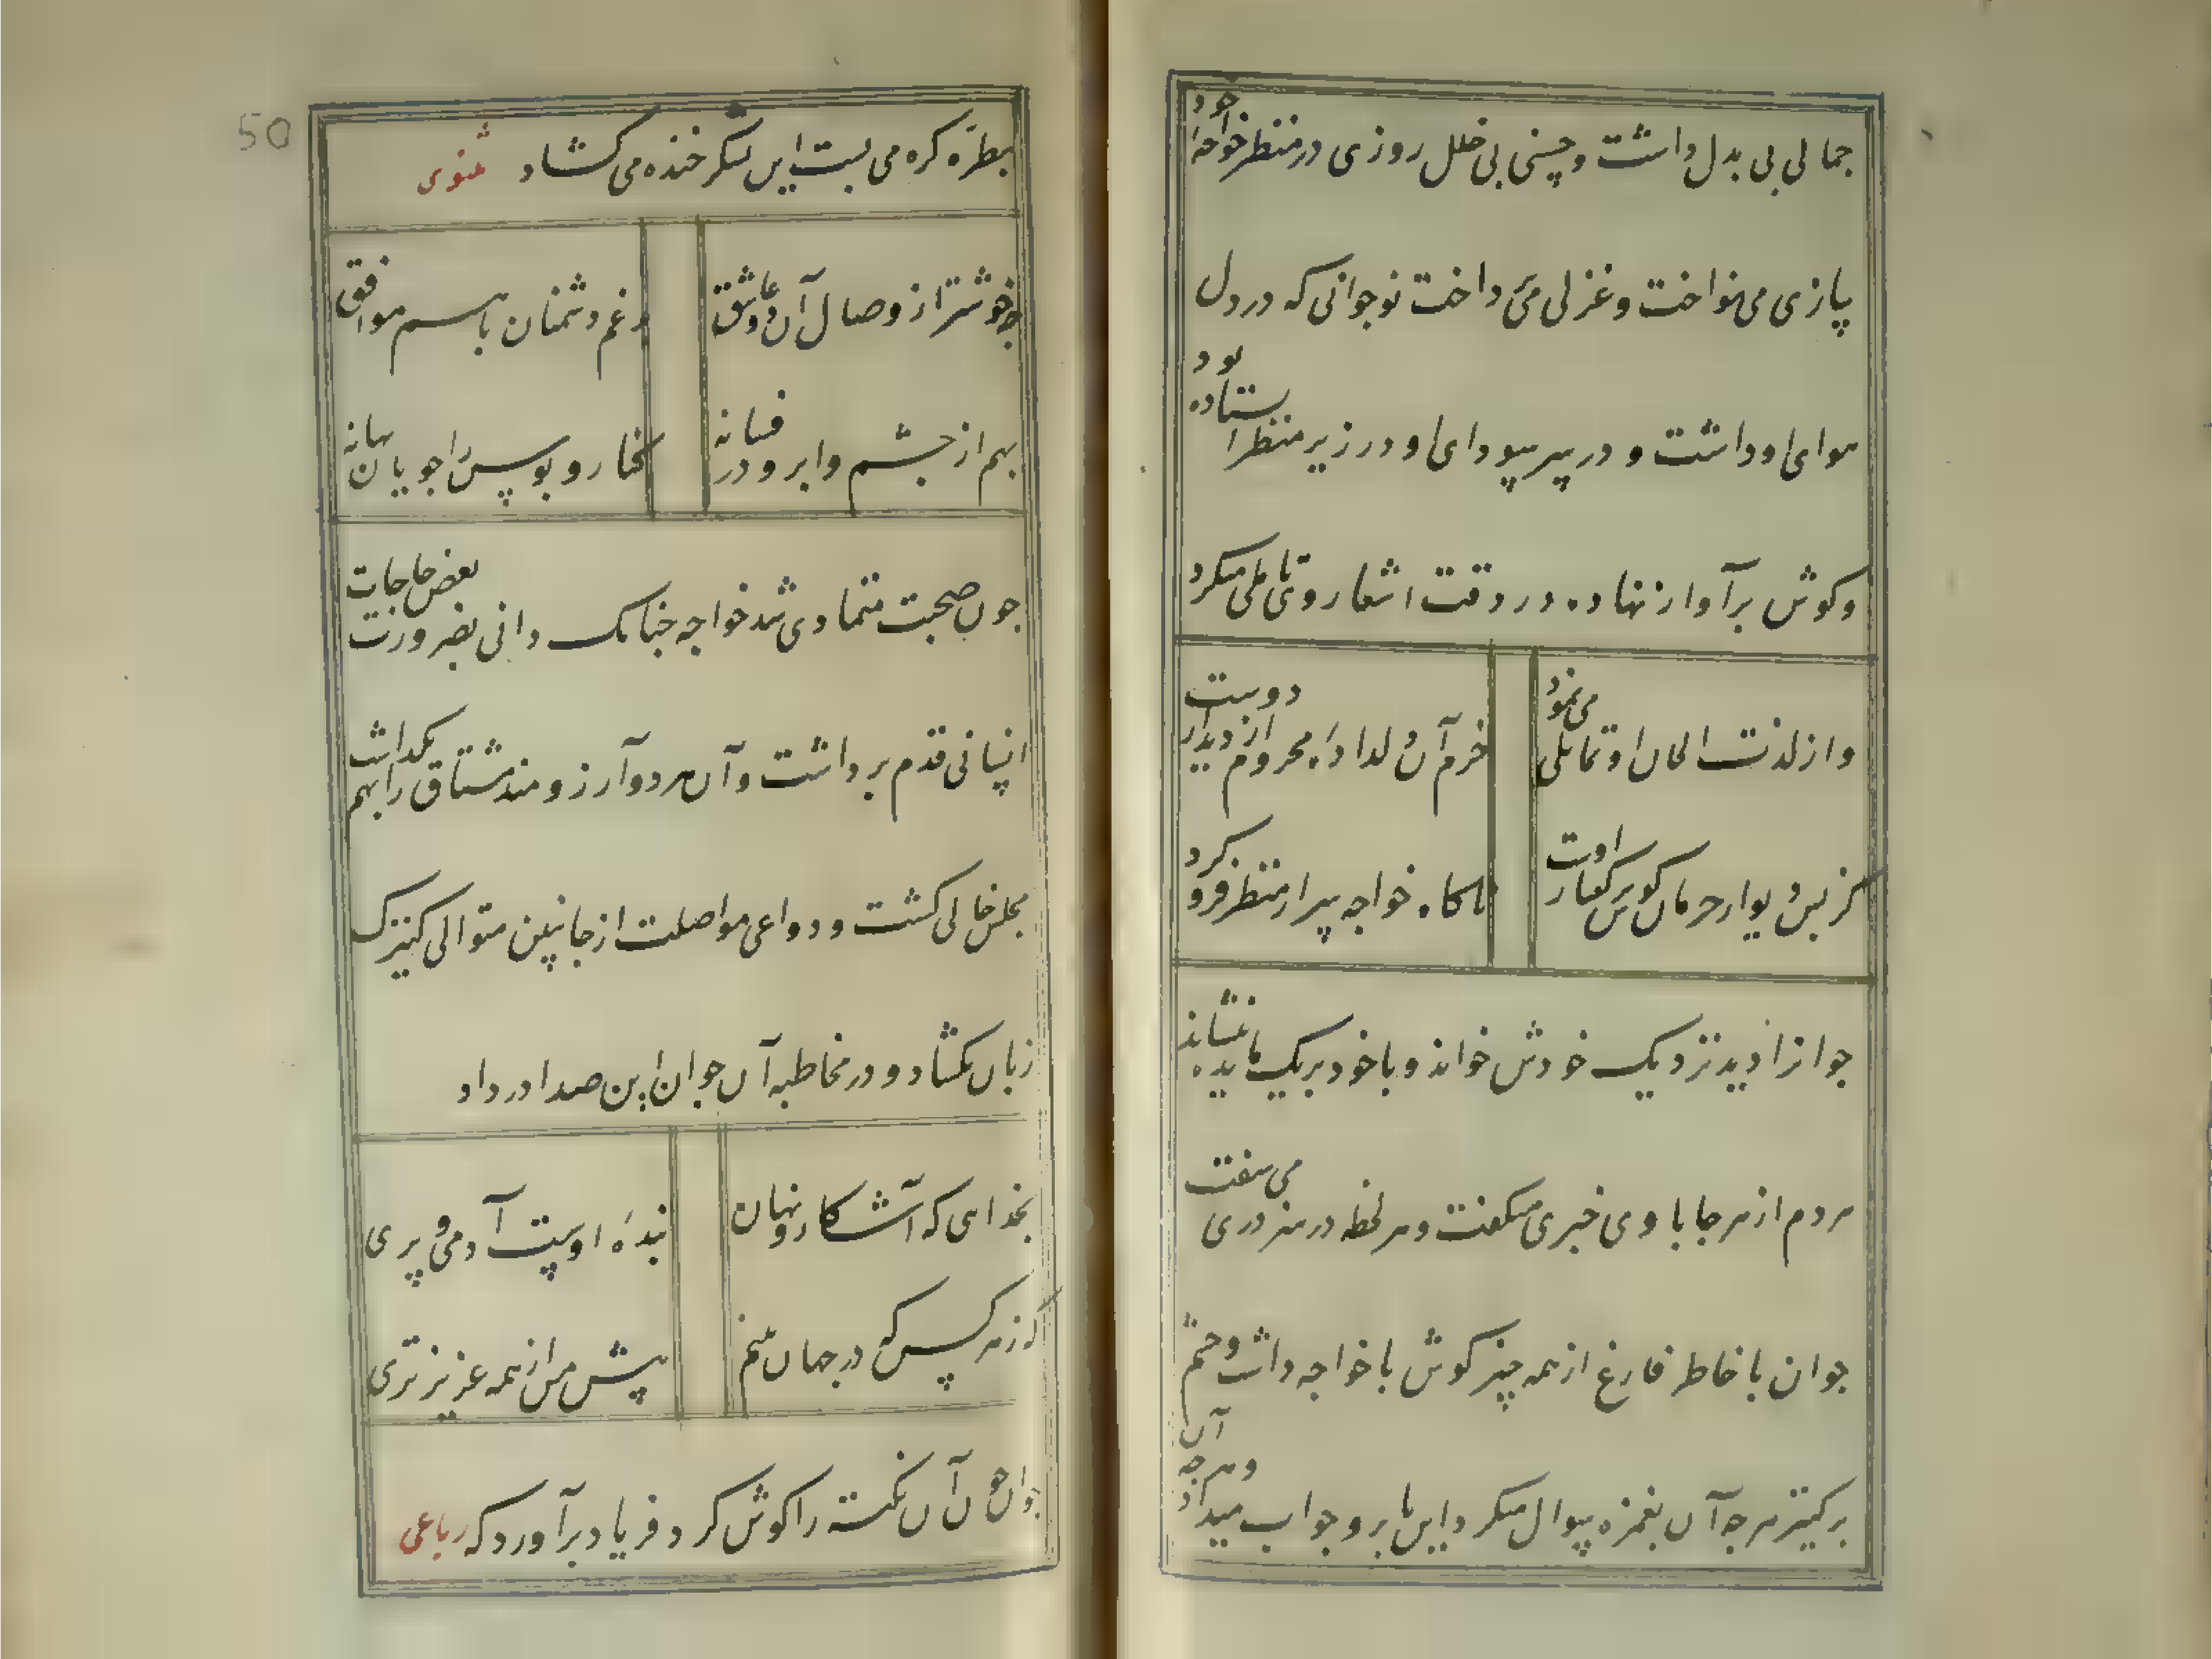 جمالی بی بدل داشت و حسنی بی خلل روزی در منظر خواجه خود
سازی می نواخت و غزلی می پرداخت نوجوانی که در دل
هوای او داشت و در سر سودای او در زیر منظر استاده بود
و کوش بر آواز نهاده در دقت اشعار وی تاملی میکرد
و از لذت الحان او تمایلی می نمود
خرم آن دلداده محروم از دیدار دوست
کز پس دیوار حرمان کوش بر کفتار اوست
ناکاه خواجه سر از منظر فرو کرد
جوانرا دید نزدیک خودش خواند و با خود بر یک مایده بنشاند
هر دم از هر جا با وی خبری میکفت و هر لحظه در هنر دری می سفت
جوان با خاطر فارغ از همه چیز کوش با خواجه داشت و چشم
بر کنیز هر چه آن بغمزه سوال میکرد این بابرو جواب میداد و هر چه آن
بطره کره می بست این بشکر خنده می کشاد مثنوی
چه خوشتر از وصال آن دو عاشق
برغم دشمنان باهم موافق
بهم از چشم و ابرو در فسانه
کنار و بوس را جویان بهانه
چون صحبت متمادی شد خواجه چنانک دانی بضرورت بعض حاجات
انسانی قدم برداشت و آن هر دو آرزومند مشتاق را بهم بکذاشت
مجلس خالی کشت و دواعی مواصلت از جانبین متوالی کنیزک
زبان بکشاد و در مخاطبه آن جوان این صدا در داد
بخدای که آشکار و نهان
بنده اوست آدمی و پری
که ز هر کس که در جهان بینم
پیش من از همه عزیزتری
جوان چون آن نکته را کوش کرد فریاد برآورد که رباعی
50